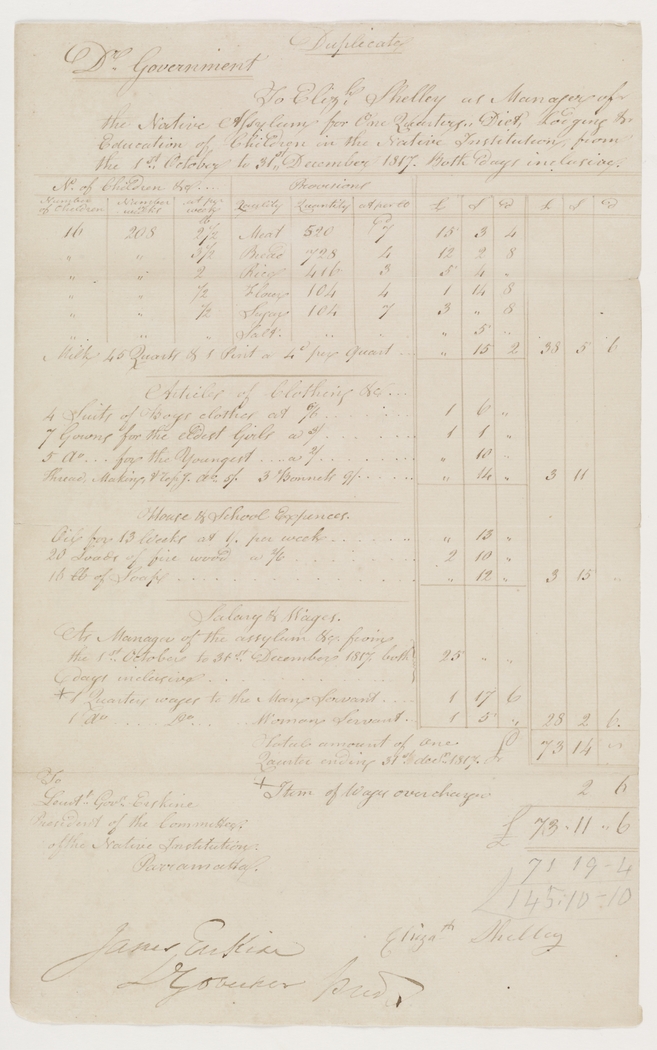 Duplicate
Dr. Government
To Elizth. Shelley as Manager of
the Native Assylum for One Quarters Diet, Lodging &
Education of Children in the Native Institution, from
the 1st. October to 31st. December 1817. Both days inclusive.
No. of Children &c. Provisions
Number of Children Number weeks at per week Quantity at per £ s d £ s d
16 208 2½ Meat 520 7 15 3 4
" " 3½ Bread 728 4 12 2 8
" " 2 Rice 416 3 5 4 "
" " ½ Flour 104 4 1 14 8
" " ½ Sugar 104 7 3 " 8
" " " Salt " " " 5 "
Milk 45 Quarts & 1 Pint a 4d per Quart " 15 2 38 5 6
Articles of Clothing &c
4 Suits of Boys clothes at 6/6 1 6 "
7 Gowns for the eldest Girls a 3/ 1 1 "
5 do for the Youngest a 2/ " 10 "
Thread, Making &c 5/. 3 Bonnets 9/ " 14 " 3 11
House & School Expences.
Oil for 13 Weeks at 1/. per week " 13 "
20 Loads of fire wood a 2/6 2 10 "
16 lb of Soap " 12 " 3 15 "
Salary & Wages.
As Manager of the assylum &c. from
the 1st. October to 31st. December 1817 both 25 " "
days inclusive
+ 1 Quarters wages to the Man Servant 1 17 6
1 do Do Woman Servant 1 5 " 28 2 6
Totals amount of one
Quarter ending 31st Decr. 1817. £ 73 14 "
+ Item of Wages overcharge 2 6
To
Leiut. Govr. Erskine
President of the Committee
of the Native Institution.
Parramatta.
£ 73 - 11 " 6
71 19 - 4
£ 145 - 10 - 10
Elizath Shelley
James Erskine
Lt Governor Presdt